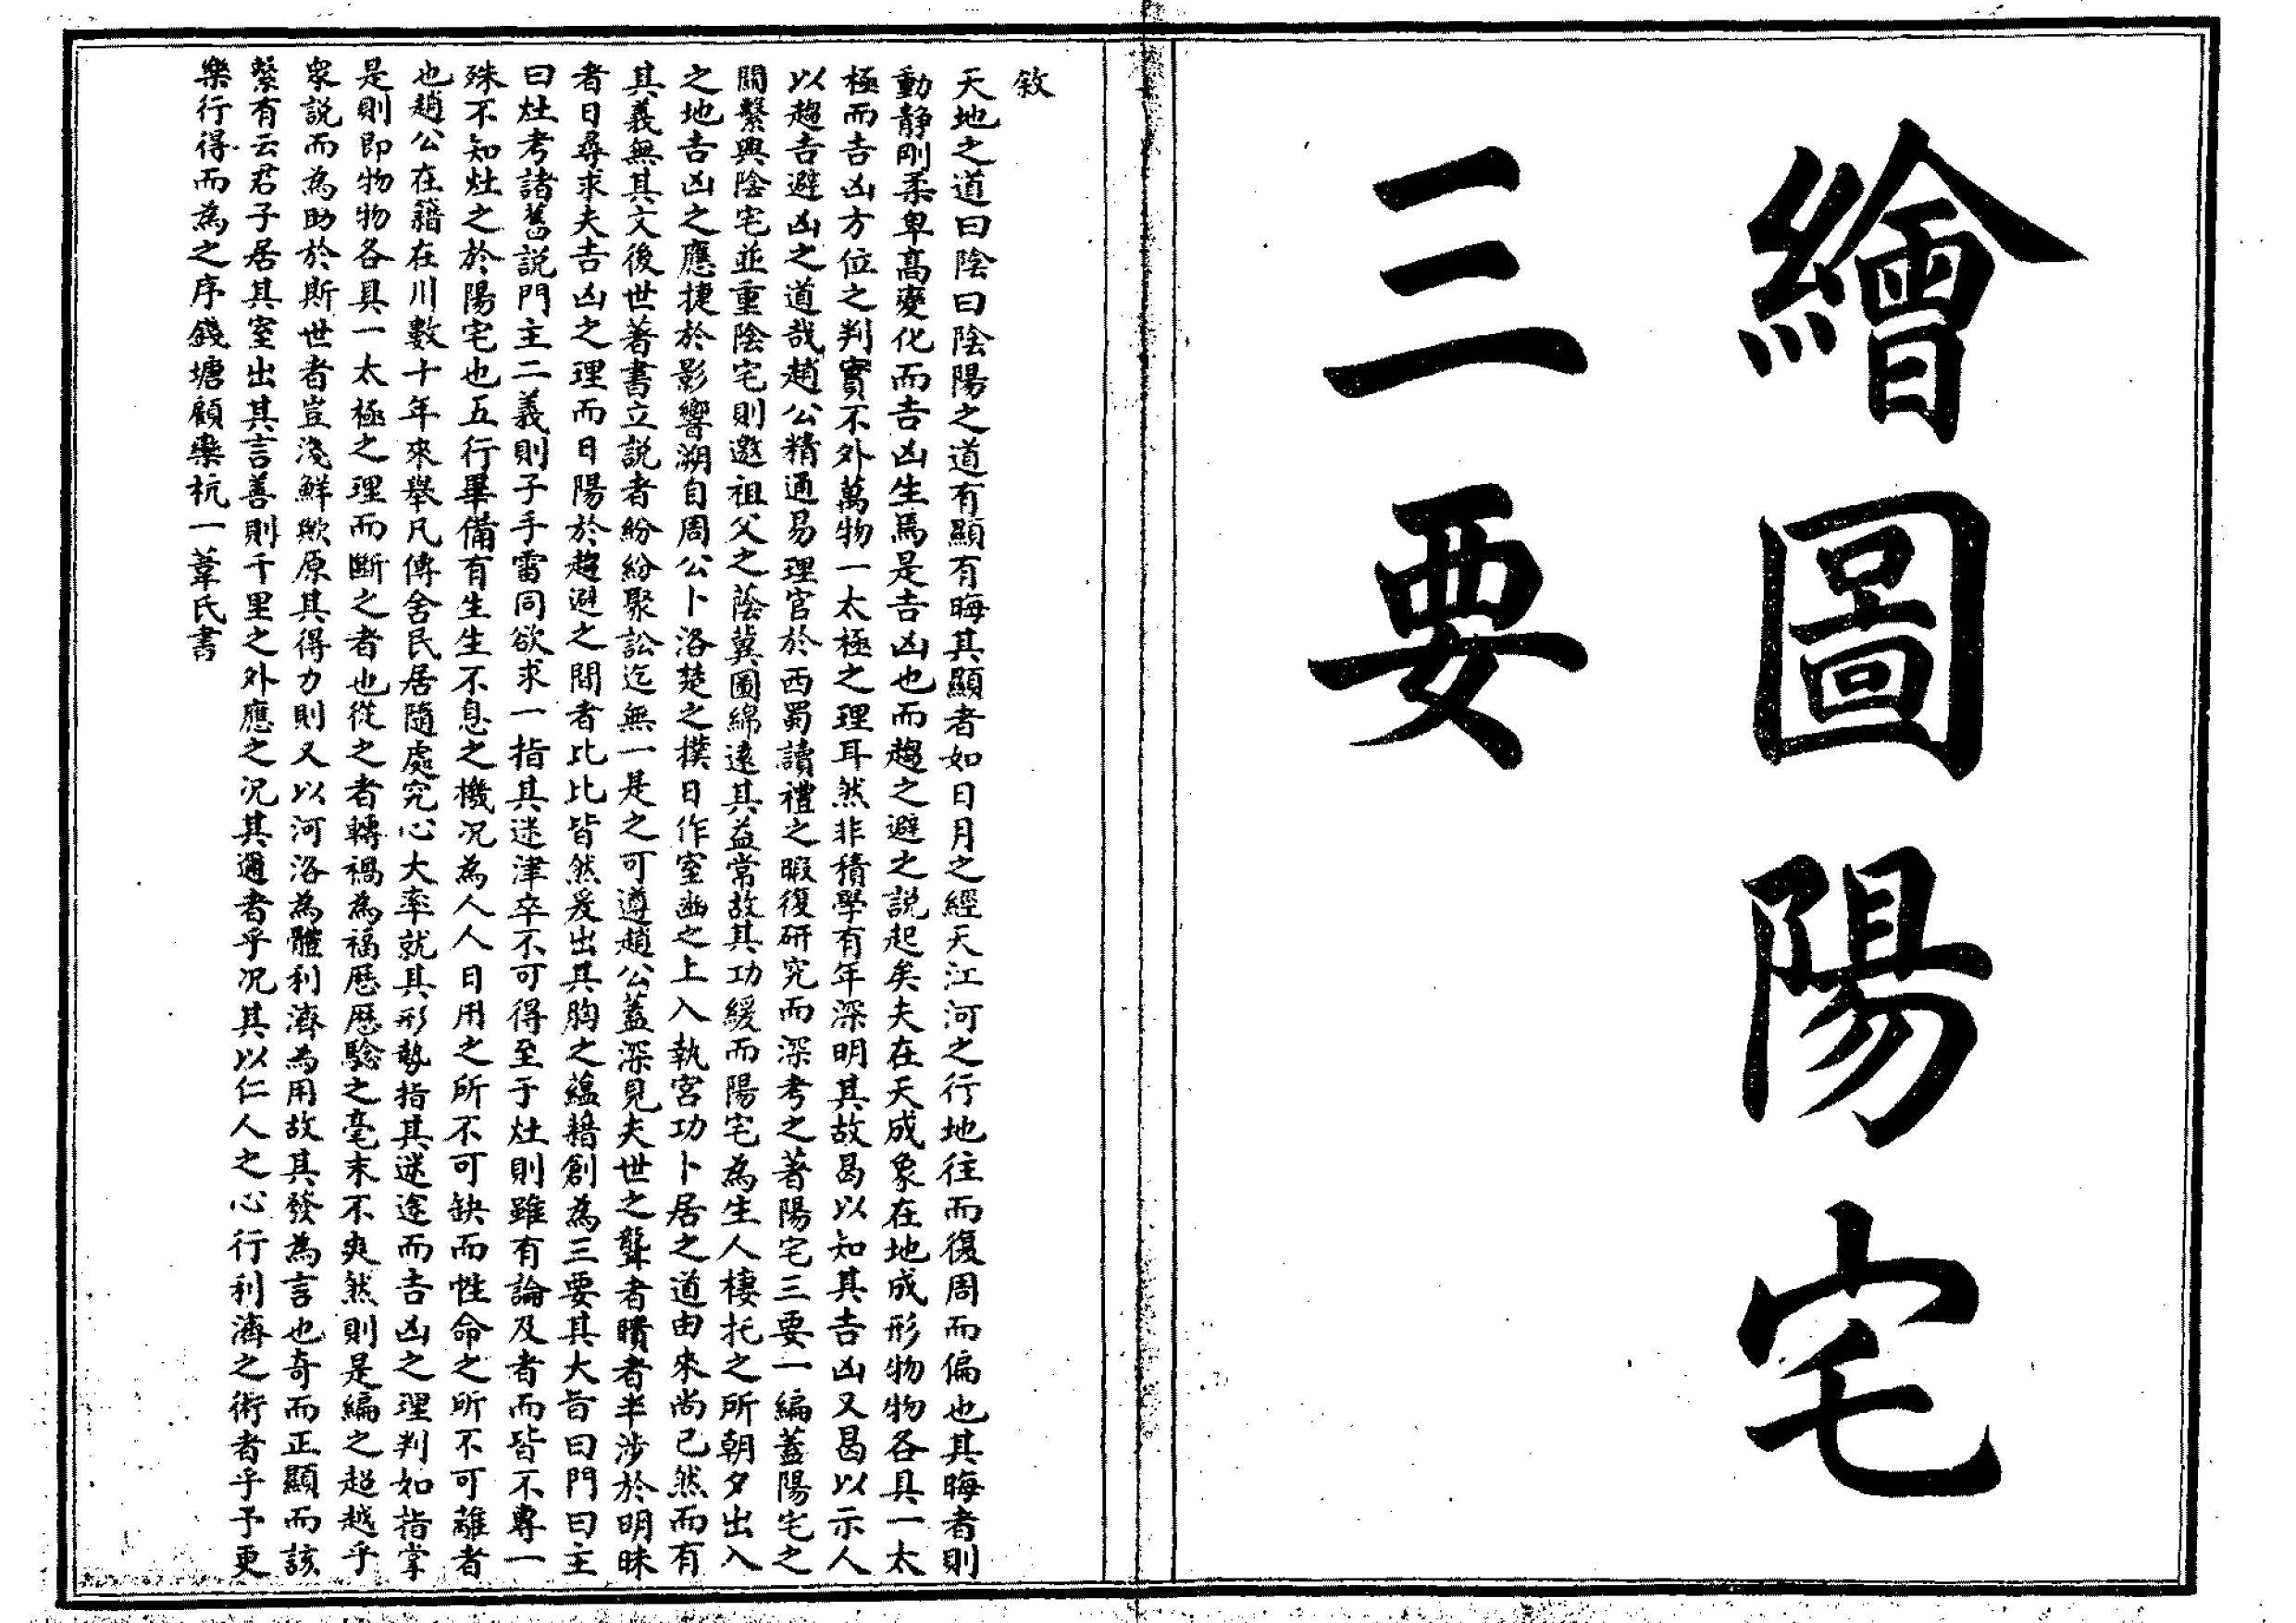 繪圖陽宅
三要
敘
天地之道曰陰曰陽陰陽之道有顯有晦其顯者如日月之經天江河之行地往而復周而偏也其晦者則
動靜剛柔卑高變化而吉凶生焉是吉凶也而趨之避之説起矣夫在天成象在地成形物物各具一太
極而吉凶方位之判實不外萬物一太極之理耳然非積學有年深明其故曷以知其吉凶又曷以示人
以趨吉避凶之道哉趙公精通易理官於西蜀讀禮之暇復研究而深考之著陽宅三要一編蓋陽宅之
關繫與陰宅並重陰宅則邀祖父之蔭冀圖綿遠其益常故其功緩而陽宅為生人棲托之所朝夕出入
之地吉凶之應捷於影響溯自周公卜洛楚之揆日作室豳之上入執宮功卜居之道由來尚已然而有
其義無其文後世著書立説者紛紛聚訟迄無一是之可遵趙公蓋深見夫世之聾者瞶者半涉於明昧
者日尋求夫吉凶之理而日陽於趨避之間者比比皆然爰出其胸之蘊藉創為三要其大旨曰門曰主
曰灶考諸舊説門主二義則子手雷同欲求一指其迷津卒不可得至于灶則雖有論及者而皆不專一
殊不知灶之於陽宅也五行畢備有生生不息之機況為人人日用之所不可缺而性命之所不可離者
也趙公在籍在川數十年來舉凡傳舍民居隨處究心大率就其形勢指其迷途而吉凶之理判如指掌
是則即物物各具一太極之理而斷之者也從之者轉禍為福歷歷驗之毫末不爽然則是編之超越乎
衆説而為助於斯世者豈淺鮮歟原其得力則又以河洛為體利濟為用故其發為言也奇而正顯而該
繫有云君子居其室出其言善則千里之外應之况其邇者乎况其以仁人之心行利濟之術者乎予更
樂行得而為之序錢塘顧樂杭一葦氏書